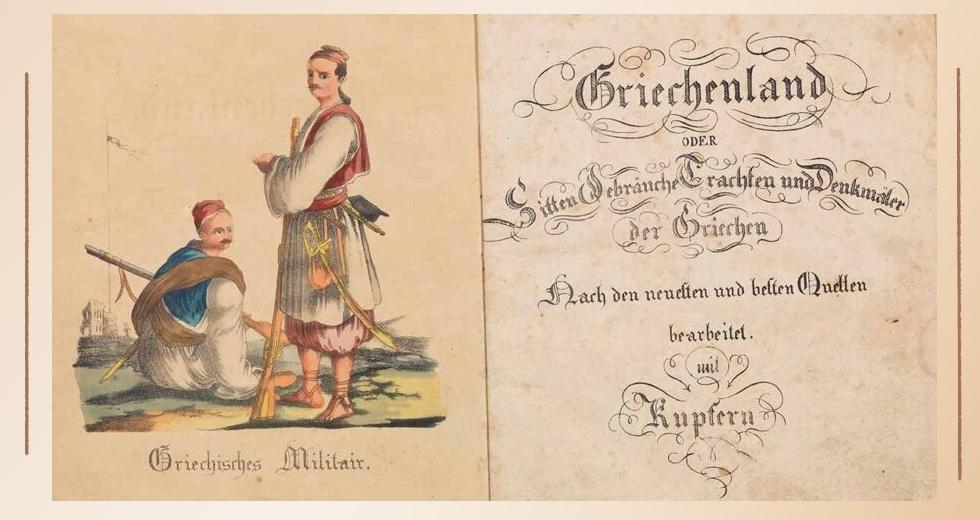 Griechisches Militair.
Griechenland
ODER
Sitten Gebräuche Trachten und Denkmäler
der Griechen
Nach den neuesten und besten Quellen
bearbeitet.
mit
Kupfern